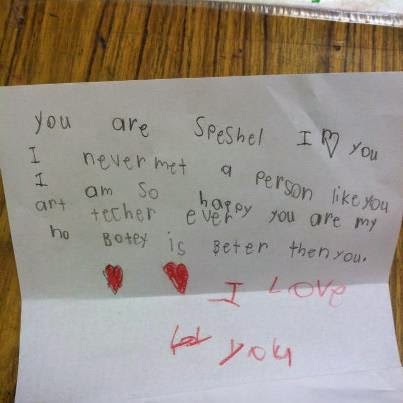 you are Speshel I ♡ you
I never met a person like you
I am so happy you are my
art techer ever
no Botey is Beter then you.
I Love
you